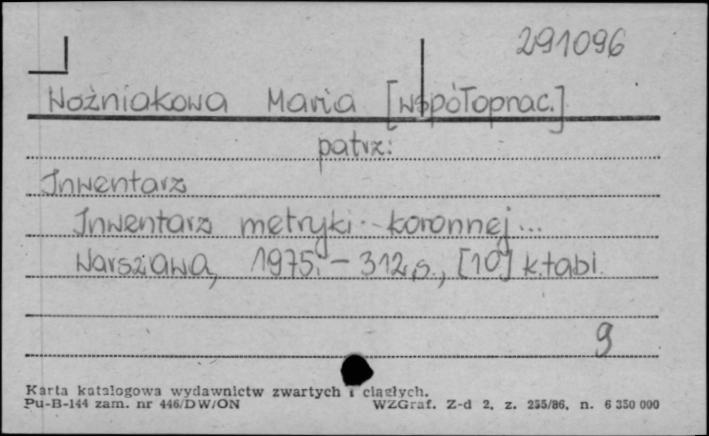 291096
Woźniakowa Maria [współoprac.]
patrz:
Inwentarz
Inwentarz metryki koronnej...
Warszawa, 1975. – 312 s., [10] k.tabl.
9
Karta katalogowa wydawnictw zwartych i ciągłych.
Pu-B-144 zam. nr 446/DW/ON WZGraf. Z-d 2, z. 255/86, n. 6 350 000